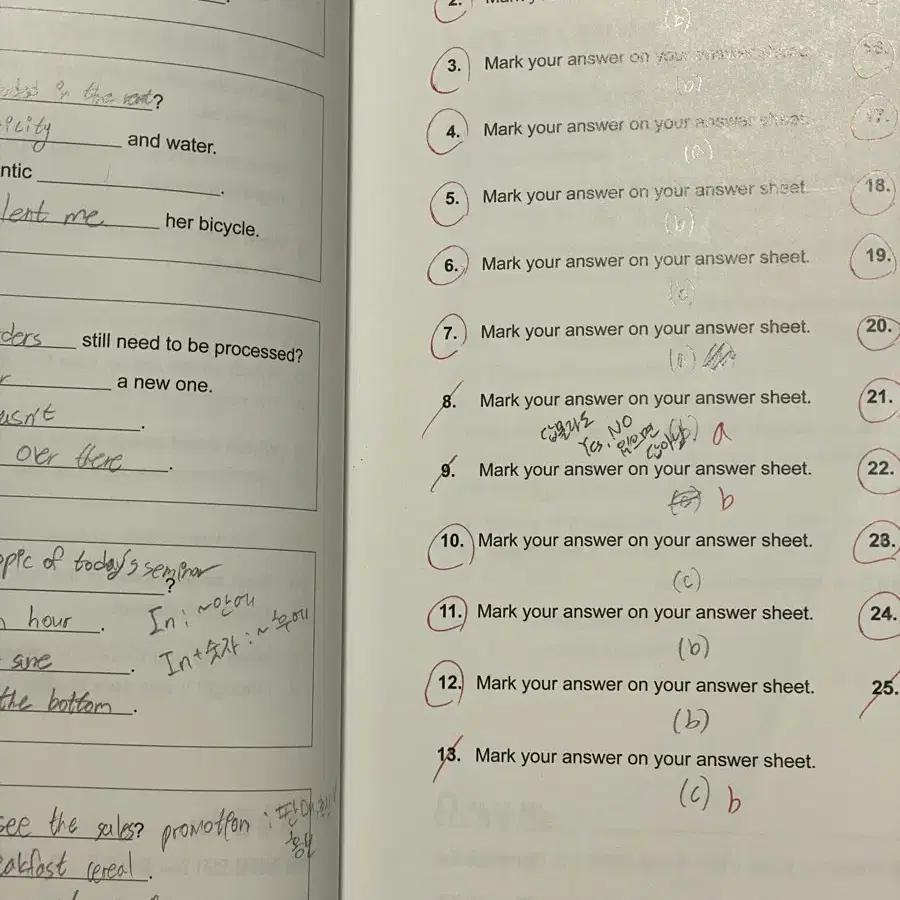 ?
and water.
ntic .
lent me her bicycle.
ders still need to be processed?
a new one.
asn't .
over there .
opic of today's seminar
?
hour .
In : ~안에
sure .
In+숫자 : ~ 후에
the bottom .
see the sales? promotion : 판매,
홍보
eakfast cereal .
2.
(b)
3. Mark your answer on your answer sheet.
(b)
4. Mark your answer on your answer sheet.
(a)
5. Mark your answer on your answer sheet.
(b)
6. Mark your answer on your answer sheet.
(c)
7. Mark your answer on your answer sheet.
8. Mark your answer on your answer sheet.
Yes, NO
(b) a
9. Mark your answer on your answer sheet.
b
10. Mark your answer on your answer sheet.
(c)
11. Mark your answer on your answer sheet.
(b)
12. Mark your answer on your answer sheet.
(b)
13. Mark your answer on your answer sheet.
(c) b
18.
19.
20.
21.
22.
23.
24.
25.